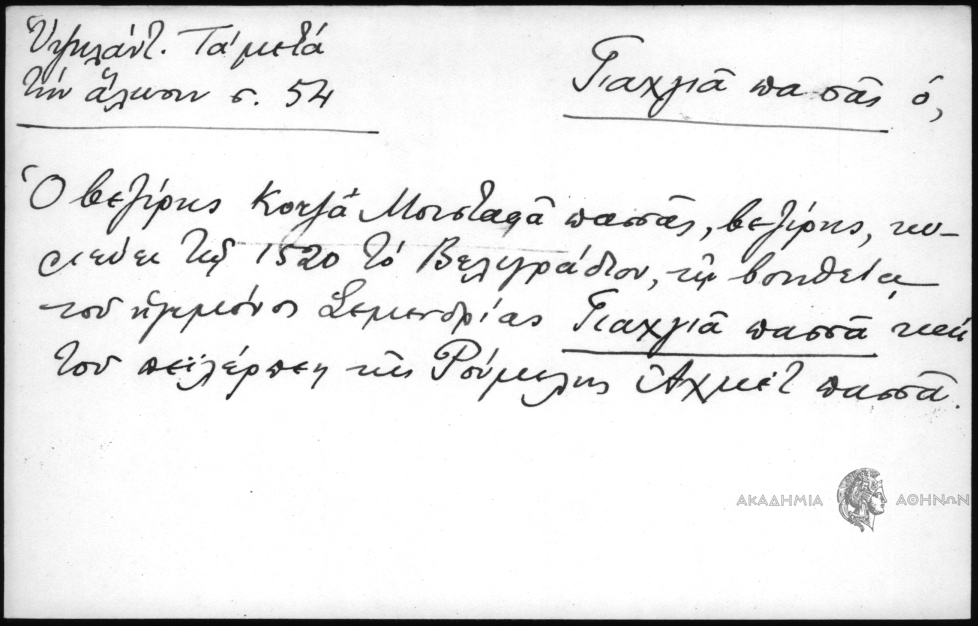 Ὑψηλάντ. Τά μετά
τήν ἅλωσιν σ. 54
Γιαχγιᾶ πασᾶς ὁ,
Ὁ βεζίρης Κοτζᾶ Μουσταφᾶ πασσᾶς, βεζίρης, κυ-
ριεύει τῷ 1520 τό Βελιγράδιον, τῇ βοηθείᾳ
τοῦ ἡγεμόνος Σεμενδρίας Γιαχγιᾶ πασσᾶ καί
τοῦ πεϊλέρπεη τῆς Ρούμελης Ἀχμέτ πασσᾶ.
ΑΚΑΔΗΜΙΑ ΑΘΗΝΩΝ